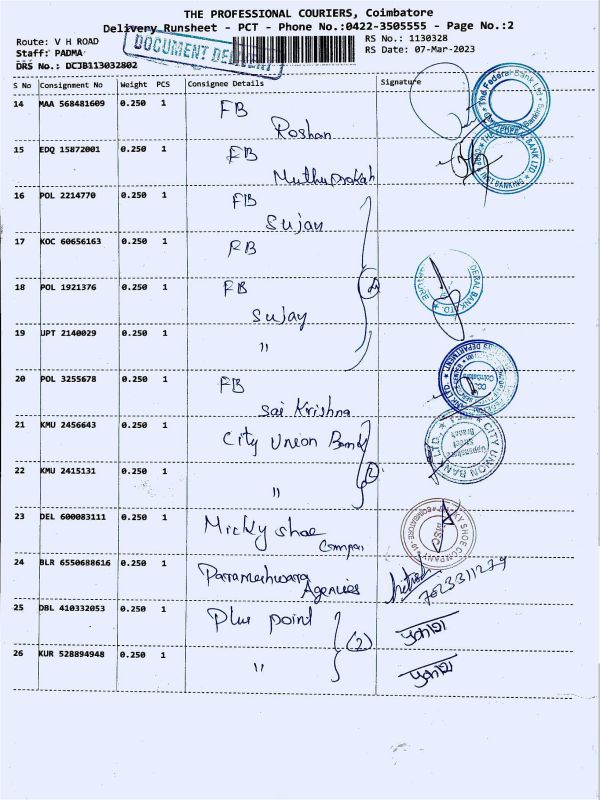 THE PROFESSIONAL COURIERS, Coimbatore
Delivery Runsheet - PCT - Phone No.:0422-3505555 - Page No.:2
Route: V H ROAD
RS No.: 1130328
Staff: PADMA
RS Date: 07-Mar-2023
DRS No.: DCJB113032802
DOCUMENT
S No Consignment No Weight PCS Consignee Details Signature
14 MAA 568481609 0.250 1 FB
Roshan
15 EDQ 15872001 0.250 1 FB
Muthuprakah
16 POL 2214770 0.250 1 FB
Sujay
17 KOC 60656163 0.250 1 FB
18 POL 1921376 0.250 1 FB
Sujay
19 JPT 2140029 0.250 1 "
20 POL 3255678 0.250 1 FB
Sai Krishna
21 KMU 2456643 0.250 1 City Union Bank
22 KMU 2415131 0.250 1 " (2)
23 DEL 600083111 0.250 1 Micky shoe
24 BLR 6550688616 0.250 1 Parrameshwara
Agencies
25 DBL 410332053 0.250 1 Plus point (2)
26 KUR 528894948 0.250 1 "
The Federal Bank Ltd.
CITY UNION BANK LTD.